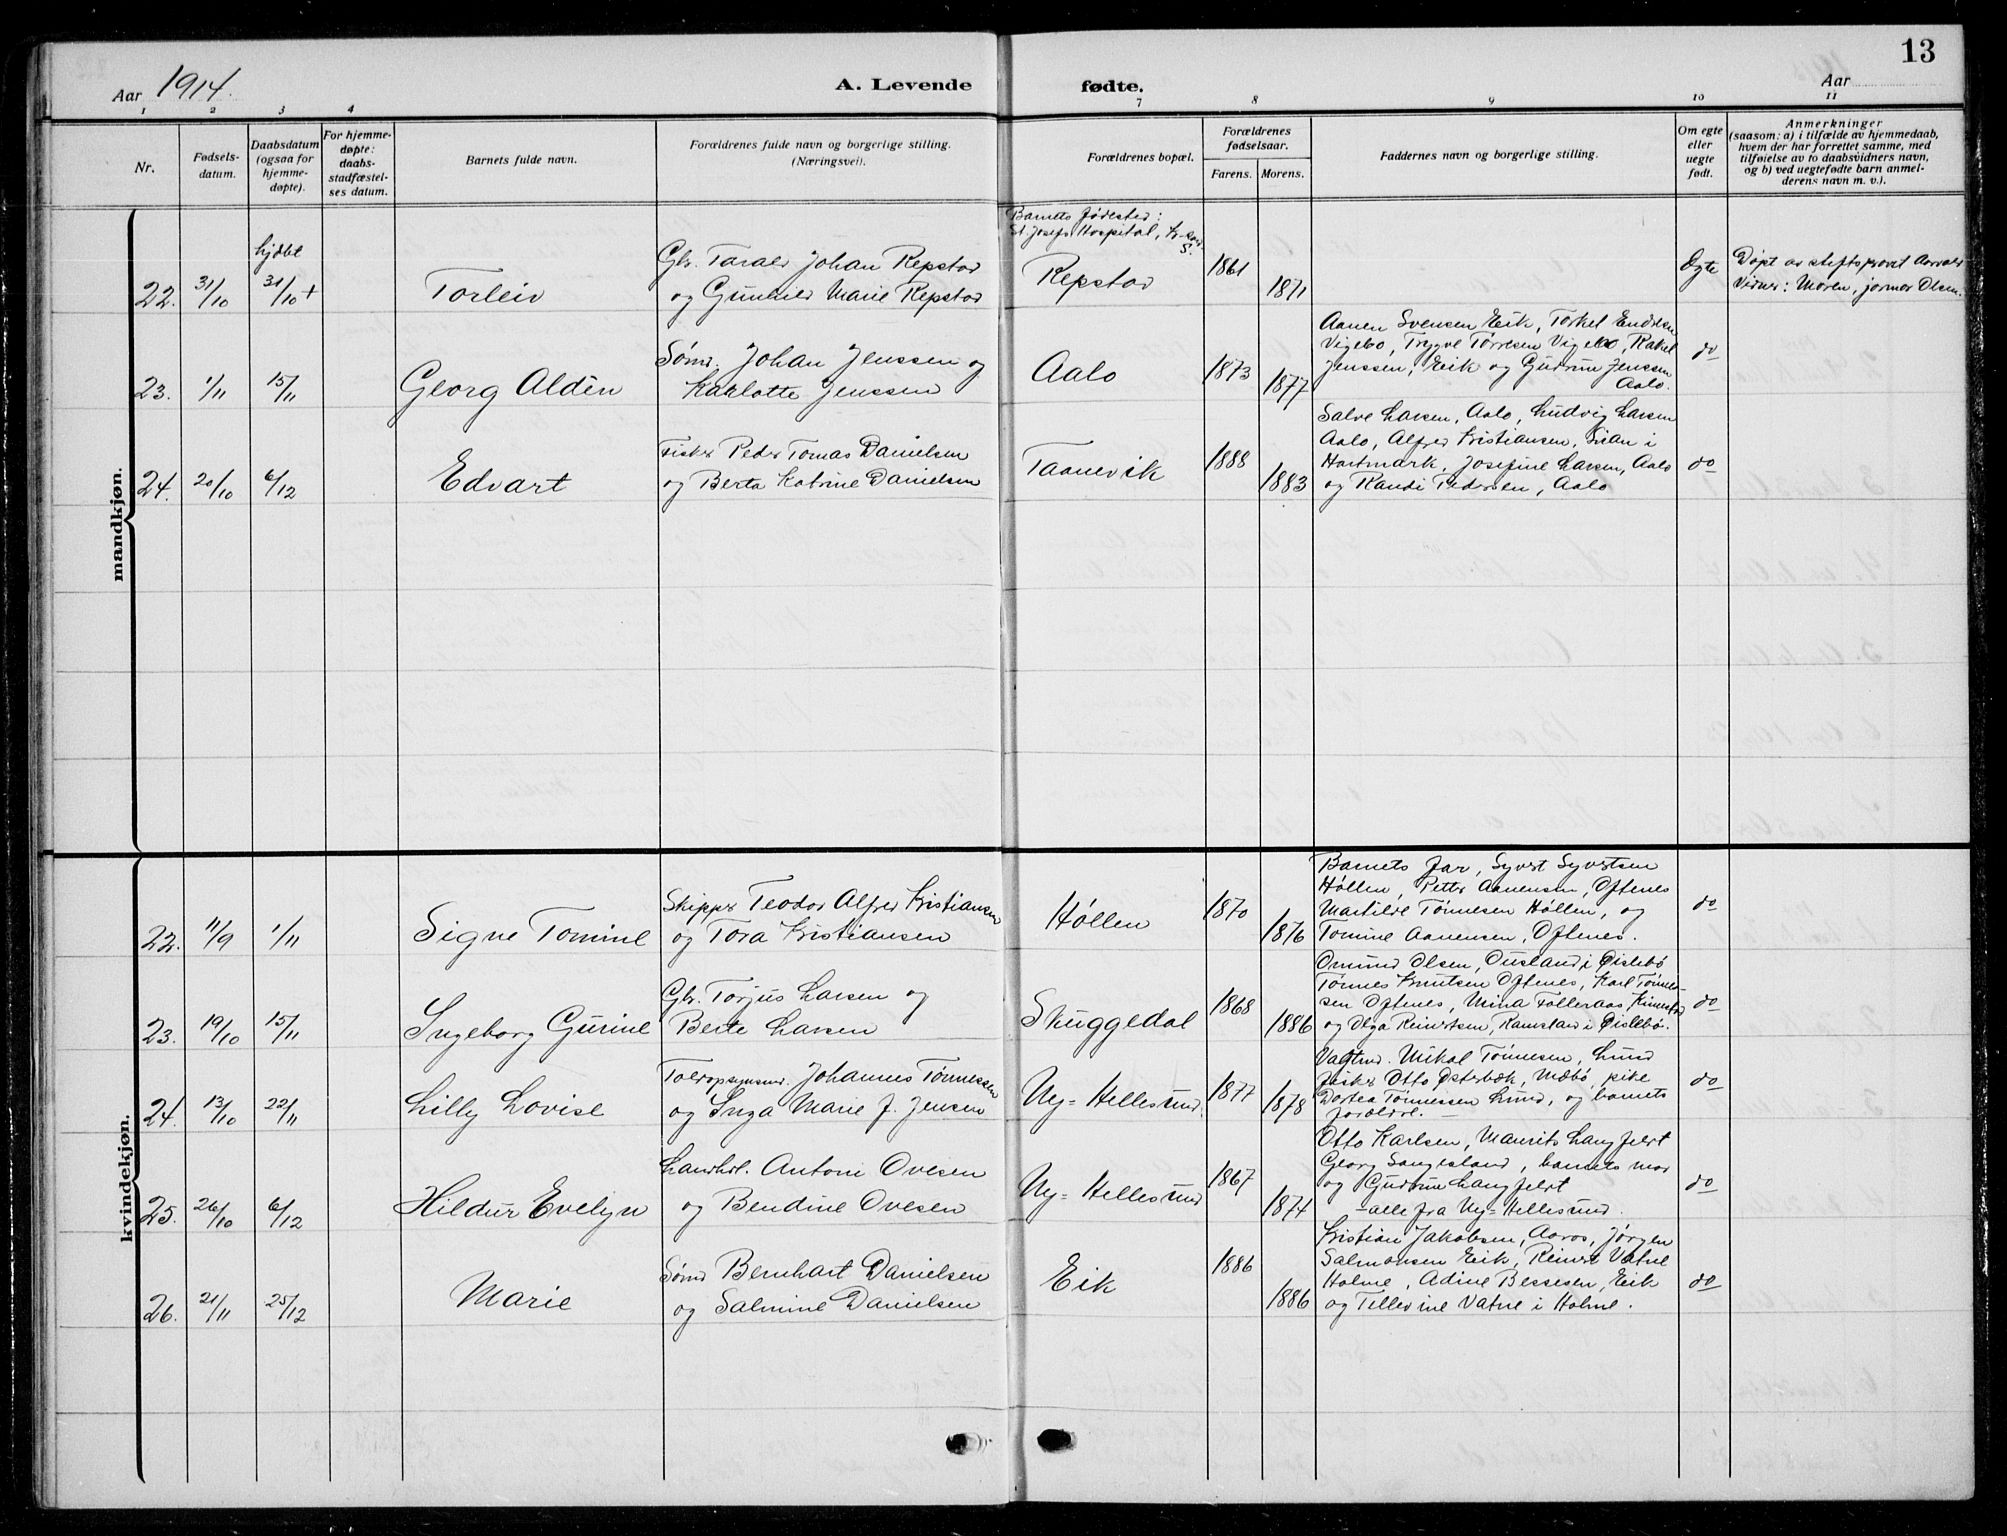 13
Aar 1914. A. Levende fødte. Aar
1 2 3 4 7 8 9 10 11
Nr.
Fødsels-
datum.
Daabsdatum
(ogsaa for
hjemme-
døpte).
For hjemme-
døpte:
daabs-
stadfæstel-
ses datum.
Barnets fulde navn.
Forældrenes fulde navn og borgerlige stilling.
(Næringsvei).
Forældrenes bopæl.
Forældrenes
fødselsaar.
Farens. Morens.
Faddernes navn og borgerlige stilling.
Om egte
eller
uegte
født.
Anmerkninger
(saasom: a) i tilfælde av hjemmedaab,
hvem der har forrettet samme, med
tilføielse av to daabsvidners navn,
og b) ved uegtefødte barn anmel-
derens navn m. v.).
mandkjøn.
22. 31/10
hjdbt
31/10 +
Torleiv
Gbr. Tarald Johan Repstad
og Gunhild Marie Repstad
Barnets fødested:
St. Josefs Hospital,
Repstad
1861
1871
Egte
Døpt av stiftsprovst
Vidner: Moren, jormor Olsen.
23. 1/11 15/11
Georg Aldén
Sømd. Johan Jenssen og
Karlotte Jenssen
Aalo
1873
1877
Aanen Svensen Eik, Torkel Endresen
Vigebo, Trygve Tørresen Vigebo, Rakel
Jenssen, Eik og Gudrun Jenssen
Aalo.
do
24. 20/10 6/12
Edvart
Fisker Peder Tomas Danielsen
og Berta Katrine Danielsen
Taanevik
1888
1883
Salve Larsen, Aalo, Ludvig Larsen
Aalo, Alfred Kristiansen, i
Hartmark, Josefine Larsen, Aalo
og Randi Pedersen, Aalo
do
kvindekjøn.
22. 11/9 1/11
Signe Tomine
Skipper Teodor Alfred Kristiansen
og Tora Kristiansen
Høllen
1870
1876
Barnets far, Syvert Syvertsen
Høllen, Petter Aanensen, Oftenes
Martilde Tønnesen Høllen, og
Tomine Aanensen, Oftenes.
do
23. 19/10 15/11
Ingeborg Gurine
Gbr. Torjus Larsen og
Berte Larsen
Skuggedal
1868
1886
Omund Olsen, Ousland i Øislebø
Tønnes Knutsen Oftenes, Karl Tønne-
sen Oftenes, Mina Folleraas,
og Olga Reinertsen, Ramsland i Øislebø.
do
24. 13/10 22/11
Lilly Lovise
Toldopsynsmd. Johannes Tønnessen
og Inga Marie J. Jensen
Ny-Hellesund.
1877
1878
Vagtmd. Mikal Tønnesen, Lund
fisker Otto Østerbæk, Mæbø, pike
Dortea Tønnessen Lund, og barnets
forældre.
do
25. 26/10 6/12
Hildur Evelyn
Landhdl. Antoni Ovesen
og Bendine Ovesen
Ny-Hellesund
1867
1874
Otto Karlsen, Maurits Langfeldt
Georg Sangesland, barnets mor
og Gudrun Langfeldt
- alle fra Ny-Hellesund.
do
26. 21/11 25/12
Marie
Sømd Bernhart Danielsen
og Salmine Danielsen
Eik
1886
1886
Kristian Jakobsen, Aaros, Jørgen
Salmonsen Eik, Reinert Vatne
Holme, Adine Bessesen, Eik
og Tellevine Vatne i Holme.
do